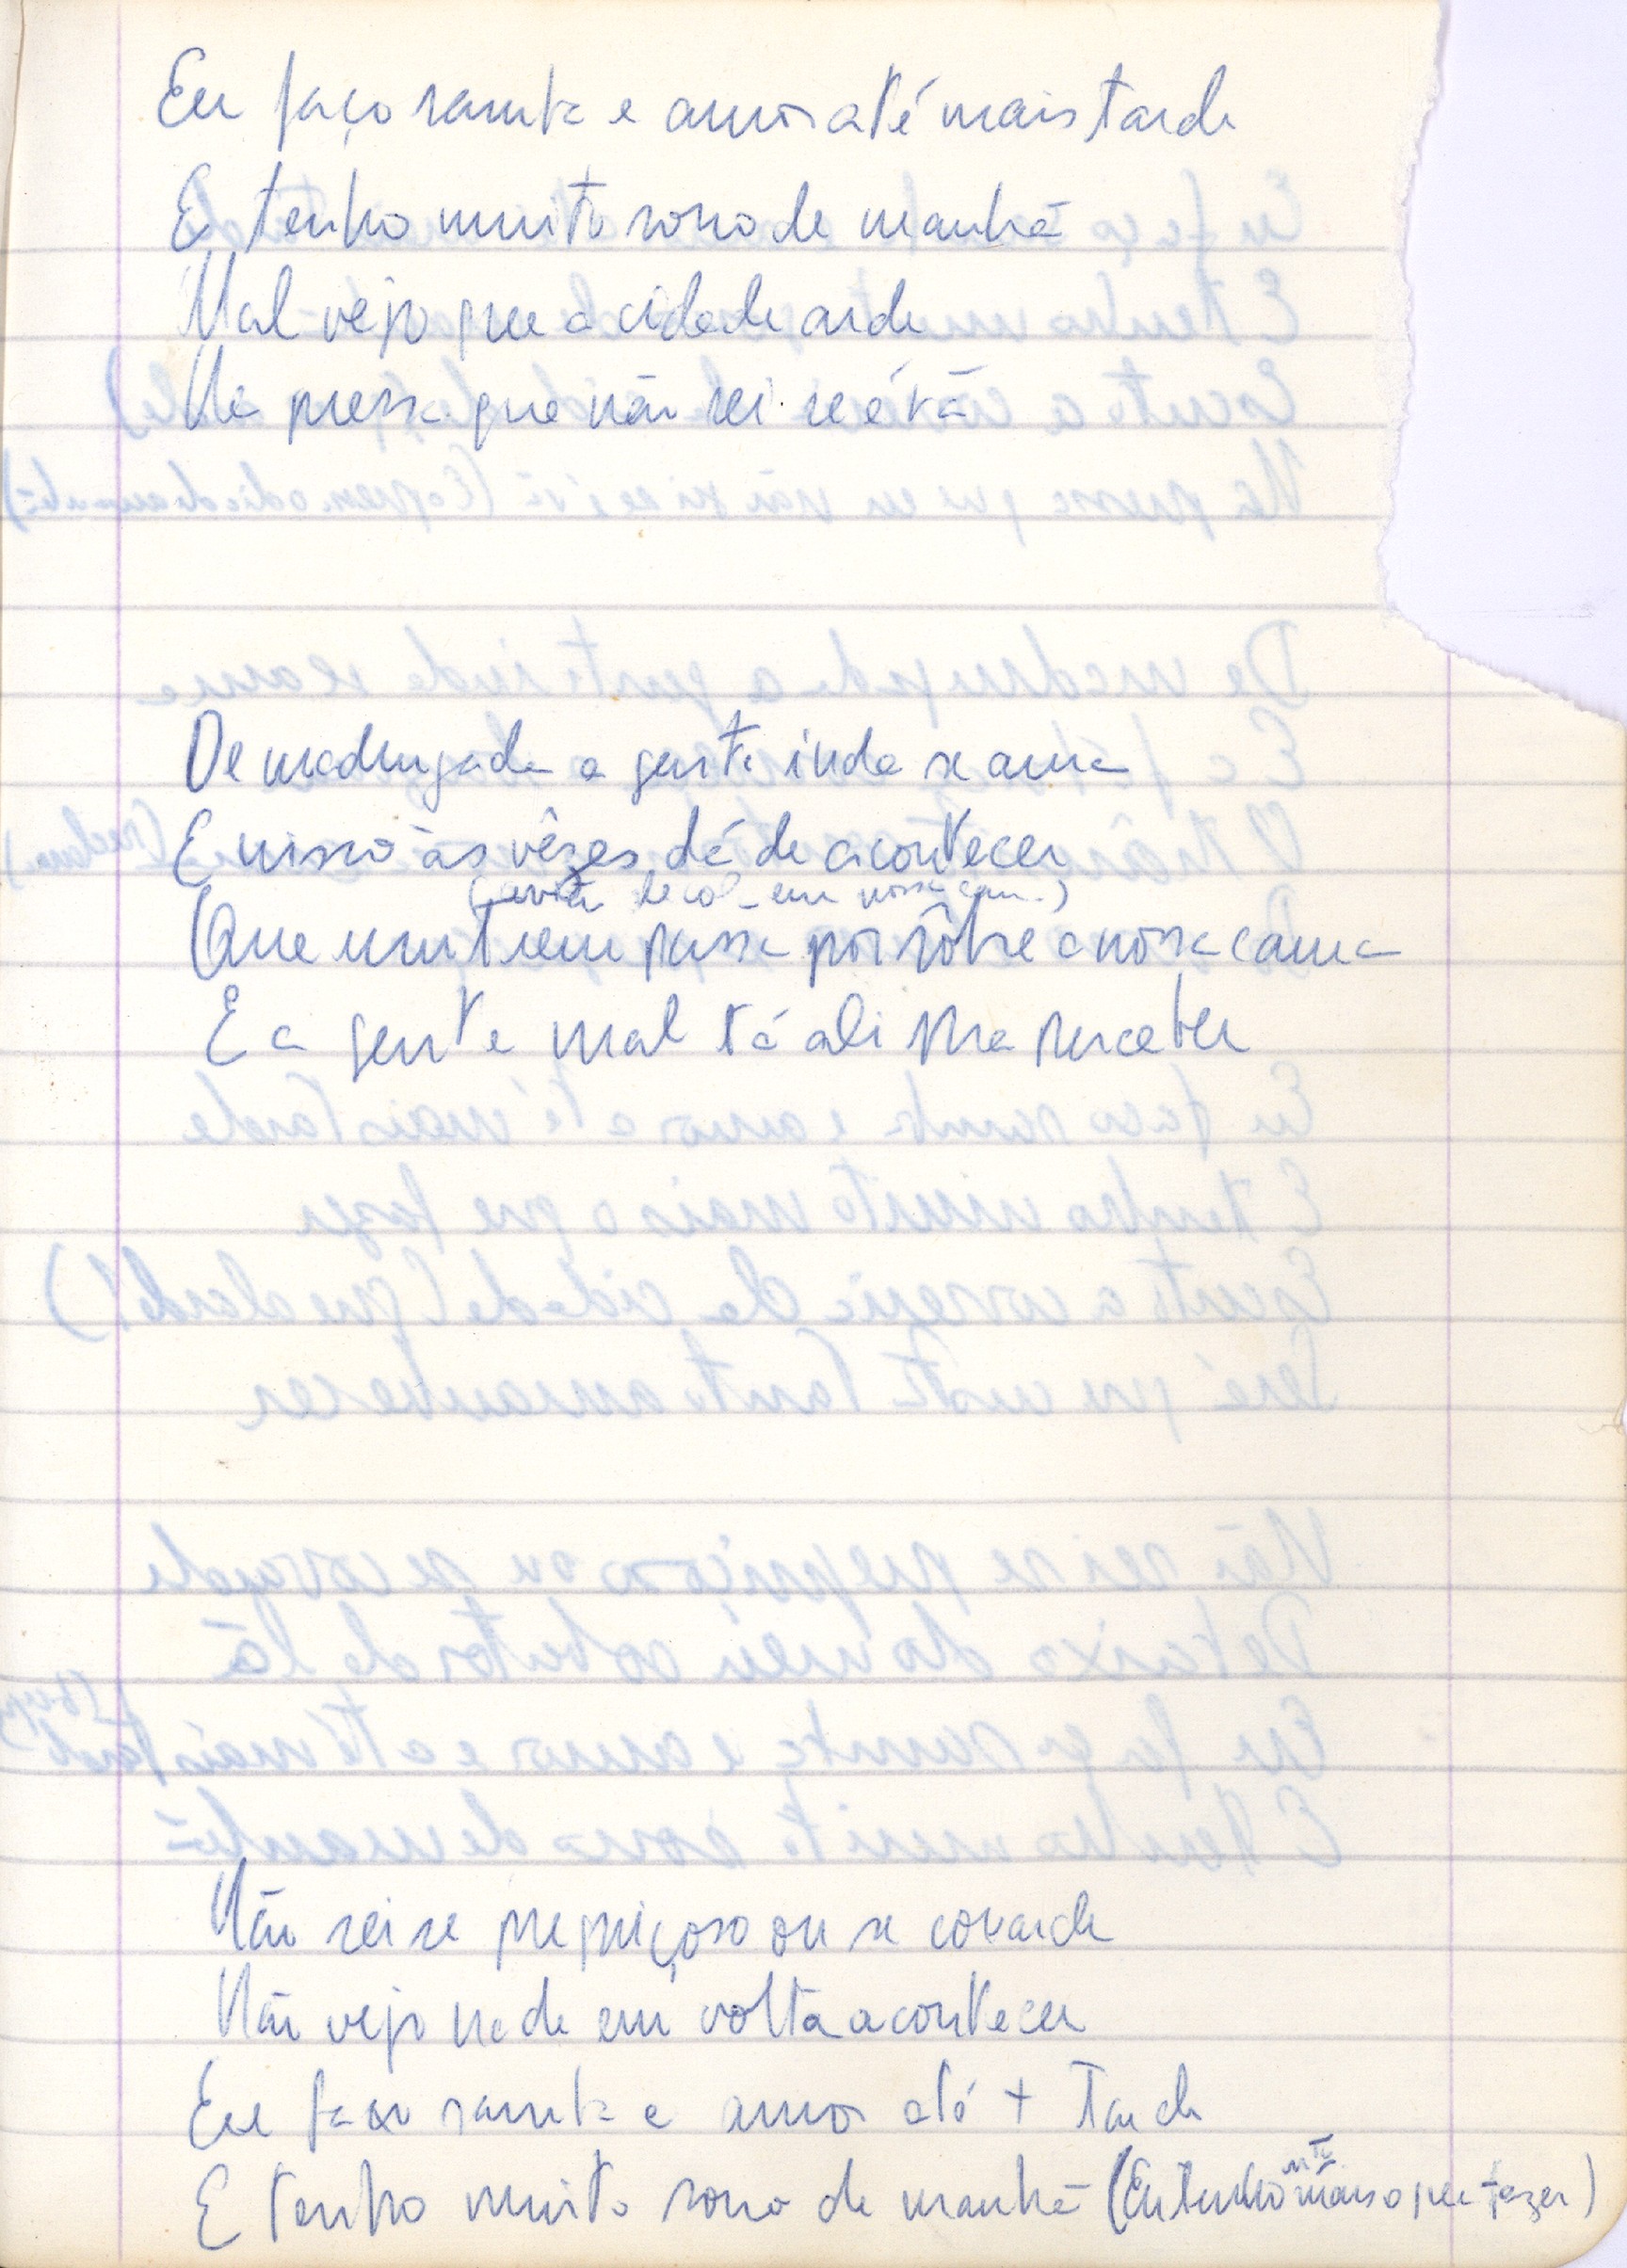 Eu faço samba e amor até mais tarde
E tenho muito sono de manhã
Mal vejo que a cidade arde
Na pressa que não sei se é vã
De madrugada a gente inda se ama
E nisso às vêzes dá de acontecer
em nossa cam.)
Que um trem passa por sôbre a nossa cama
E a gente mal tá ali pra perceber
Não sei se preguiçoso ou se covarde
Não vejo nada em volta acontecer
Eu faço samba e amor até + tarde
E tenho muito sono de manhã (Eu tenho mto mais o que fazer)